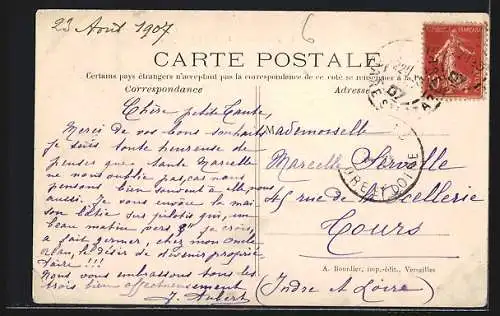 23 Août 1907
6
CARTE POSTALE
Certains pays étrangers n'acceptent pas la correspondance de ce côté se renseigner à la
Correspondance
Adresse
Chère petite tante,
Merci de vos bons souhaits
je suis toute heureuse de
penser que tante Marcelle
ne nous oublie pas, car nous
pensons bien souvent à elle
aussi. Je vous envoie la mai
son bâtie sur pilotis qui, un
beau matin vers 9h je crois,
a fait germer, chez mon oncle
le désir de devenir proprié
taire !!!
Nous vous embrassons tous les
trois bien affectueusement
J. Aubert
Mademoiselle
Marcelle Servolle
45 rue de la Scellerie
Tours
(Indre & Loire)
A. Bourdier, imp.-édit., Versailles
INDRE ET LOIRE